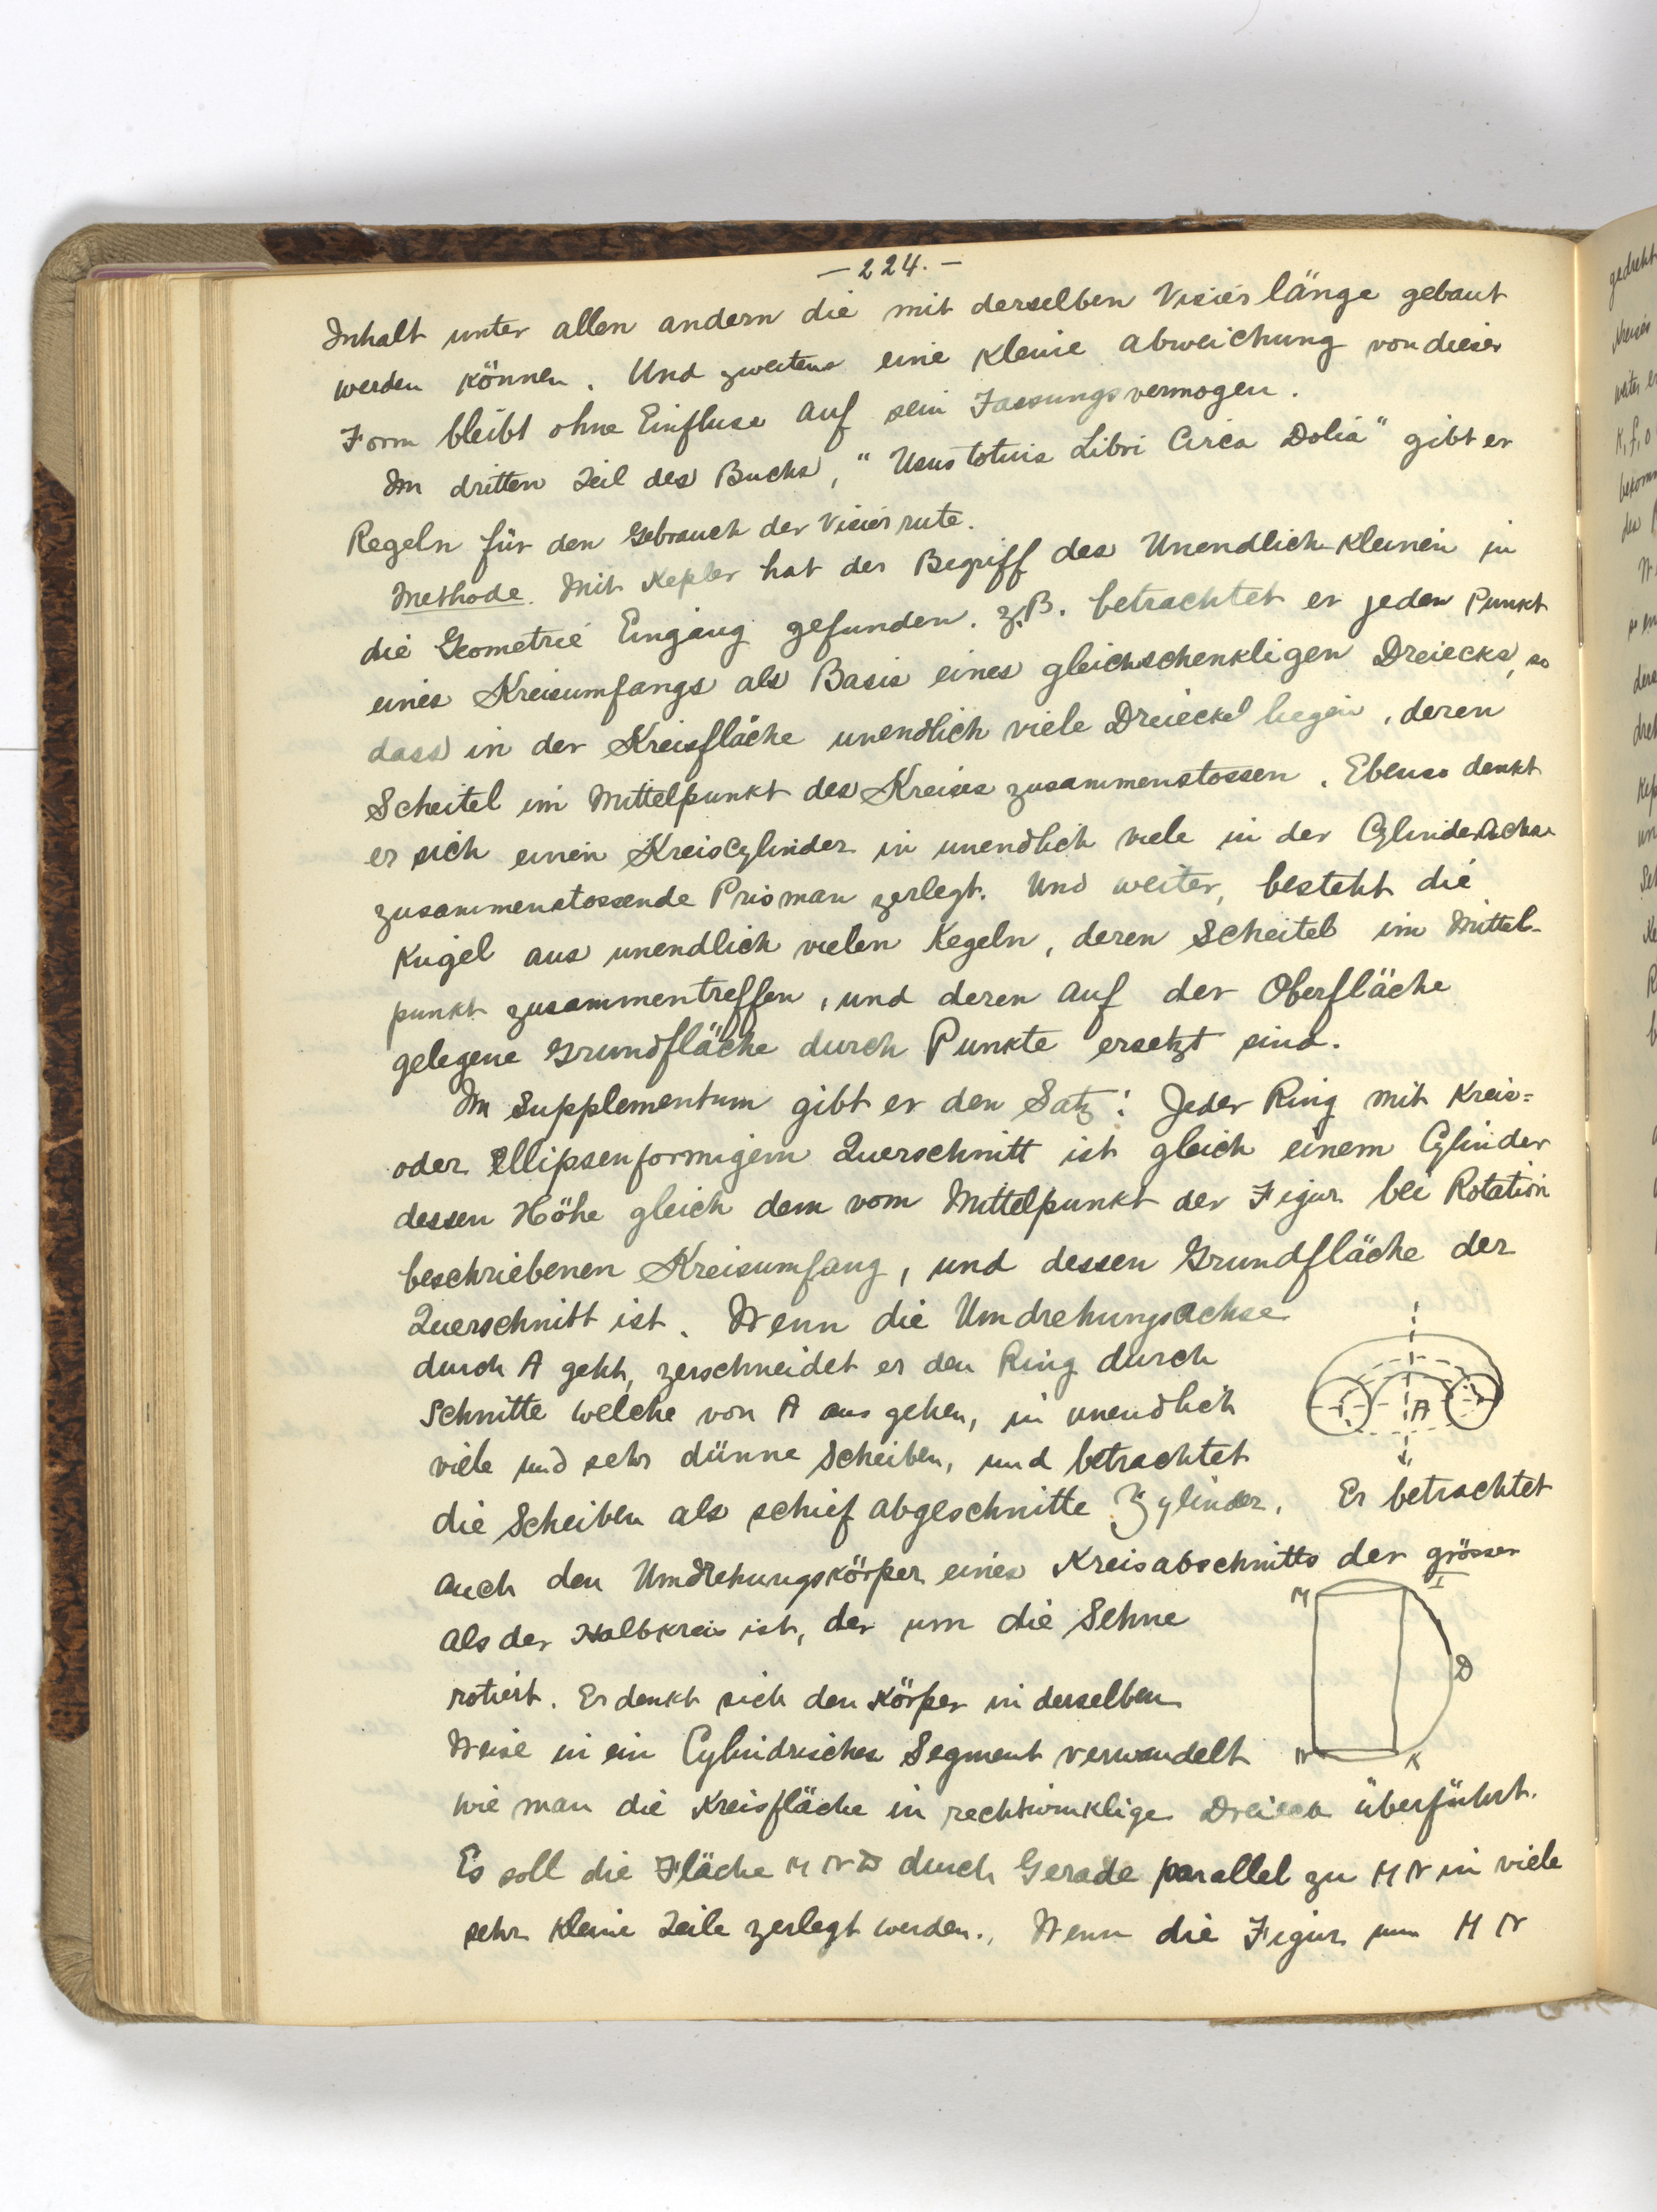 — 224. —
Inhalt unter allen andern die mit derselben Visierlänge gebaut
werden können. Und zweitens eine kleine abweichung von dieser
Form bleibt ohne Einfluss auf sein Fassungsvermogen.
Im dritten Teil des Buchs, "Usus totius Libri Circa Dolia" gibt er
Regeln für den Gebrauch der Visierrute.
Methode. Mit Kepler hat der Begriff des Unendlich-kleinen in
die Geometrie Eingang gefunden. z.B. betrachtet er jeden Punkt
eines Kreisumfangs als Basis eines gleichschenkligen Dreiecks, so
dass in der Kreisfläche unendlich viele Dreiecke liegen, deren
Scheitel im Mittelpunkt des Kreises zusammenstossen. Ebenso denkt
er sich einen Kreiscylinder in unendlich viele in der Cylinderachse
zusammenstossende Prisman zerlegt. Und weiter, besteht die
Kugel aus unendlich vielen Kegeln, deren Scheitel im Mittel-
punkt zusammentreffen, und deren auf der Oberfläche
gelegene Grundfläche durch Punkte ersetzt sind.
Im Supplementum gibt er den Satz: Jeder Ring mit Kreis=
oder Ellipsenformigem Querschnitt ist gleich einem Cylinder
dessen Höhe gleich dem vom Mittelpunkt der Figur bei Rotation
beschriebenen Kreisumfang, und dessen Grundfläche der
Querschnitt ist. Wenn die Umdrehungsachse
durch A geht, zerschneidet er den Ring durch
Schnitte welche von A aus gehen, in unendlich
viele und sehr dünne Scheiben, und betrachtet
A
die Scheiben als schief abgeschnitte Zylinder. Er betrachtet
auch den Umdrehungskörper eines Kreisabschnitts der grösser
als der Halbkreis ist, der um die Sehne
rotiert. Er denkt sich den Körper in derselben
Weise in ein Cylindrisches Segment verwandelt
M
I
D
N
K
wie man die Kreisfläche in rechtwinklige Dreieck überführt.
Es soll die Fläche M N D durch Gerade parallel zu M N in viele
sehr kleine Teile zerlegt werden. Wenn die Figur um M N